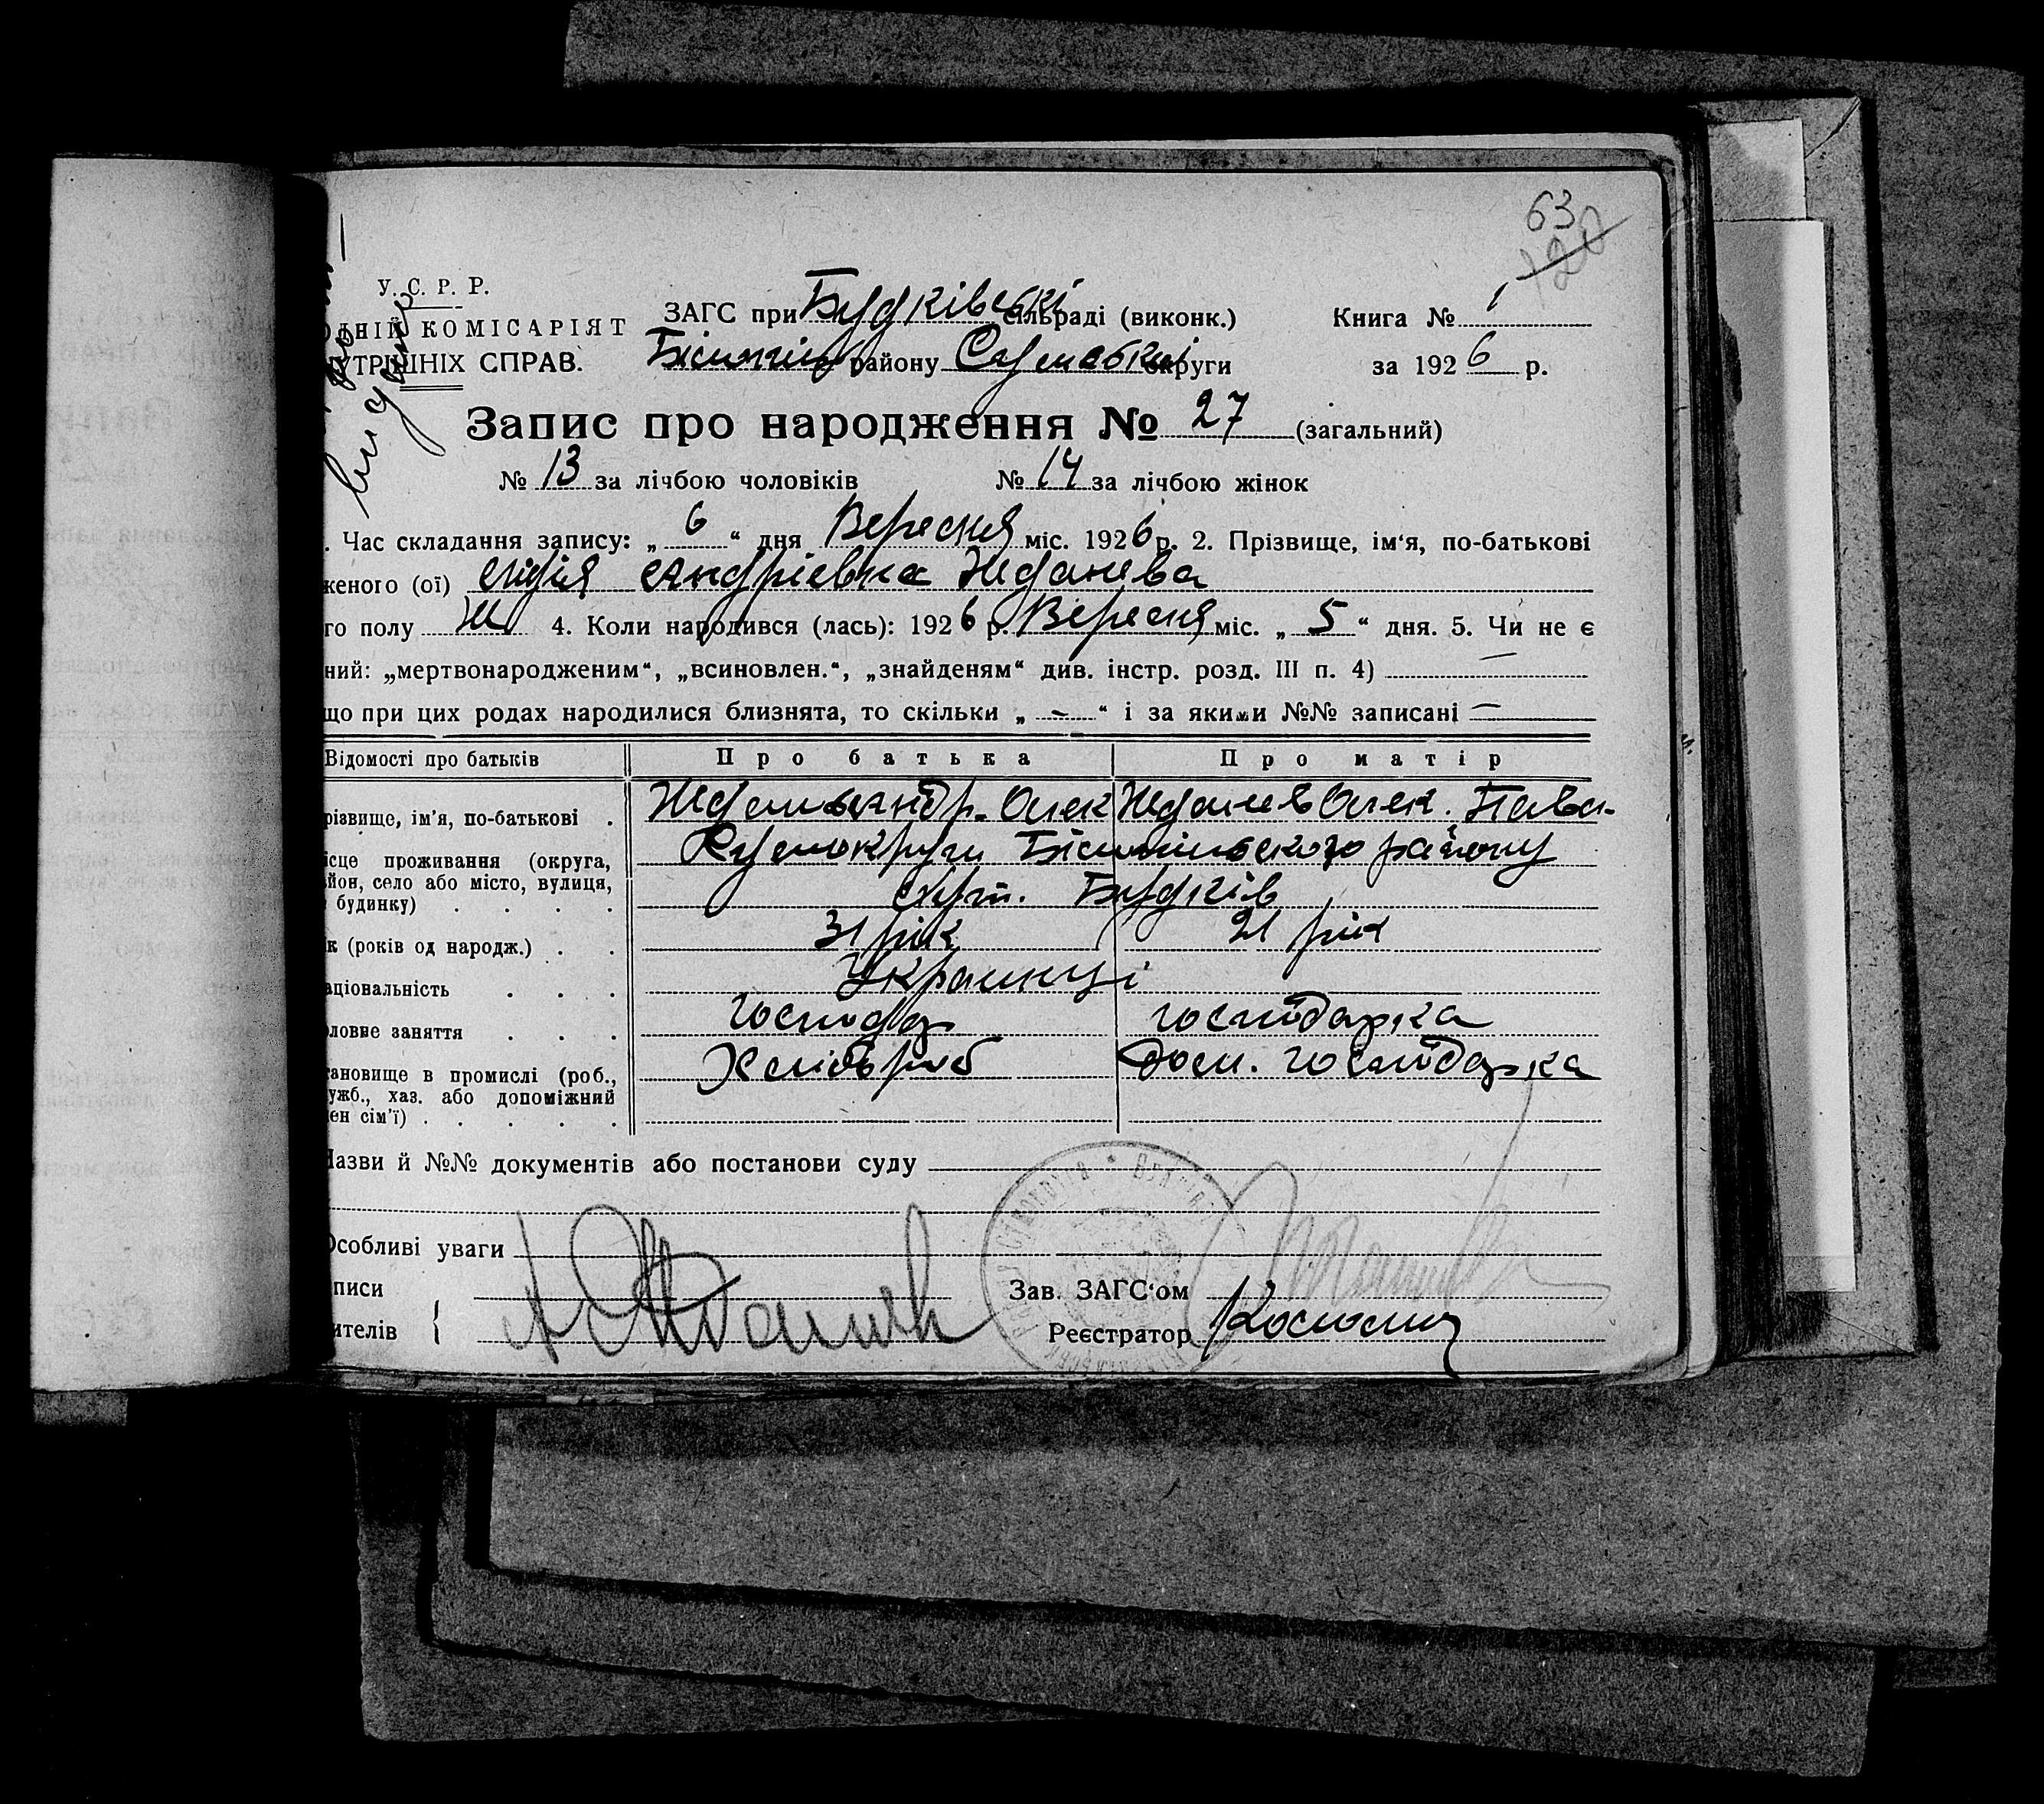 63
120
У. С. Р. Р.
ОДНІЙ КОМІСАРІЯТ
УТРІШНІХ СПРАВ.
видано
ЗАГС при Будківській сільраді (виконк.)
району Сумської округи
Книга № 1
за 1926 р.
Запис про народження № 27 (загальний)
№ 13 за лічбою чоловіків № 14 за лічбою жінок
. Час складання запису: „ 6 “ дня Вересня міс. 1926 р. 2. Прізвище, ім‘я, по-батькові
женого (ої) Лідія Андріевна Жданева
го полу Ж 4. Коли народився (лась): 1926 р. Вересня міс. „ 5 “ дня. 5. Чи не є
ний: „мертвонародженим“, „всиновлен.“, „знайденям“ див. інстр. розд. III п. 4) —
що при цих родах народилися близнята, то скільки „ — “ і за якими №№ записані —
Відомості про батьків Про батька Про матір
різвище, ім‘я, по-батькові . Андр. Олек Жданев Олек. Павл.
ісце проживання (округа,
йон, село або місто, вулиця,
будинку) . . . .
округи району
хут. Будків
к (років од народж.) . . 31 рік 21 рік
аціональність . . . Украинці
ловне заняття . . . господар господарка
тановище в промислі (роб.,
ужб., хаз. або допоміжний
ен сім‘ї) . . . . .
Хлібороб Дом. господарка
Назви й №№ документів або постанови суду
Особливі уваги
писи
ителів {
Зав. ЗАГС‘ом
Реєстратор